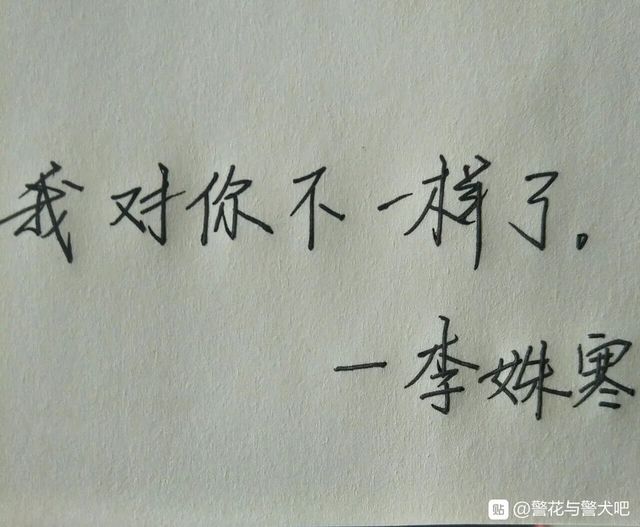 我对你不一样了。
一李姝寒
贴 @警花与警犬吧